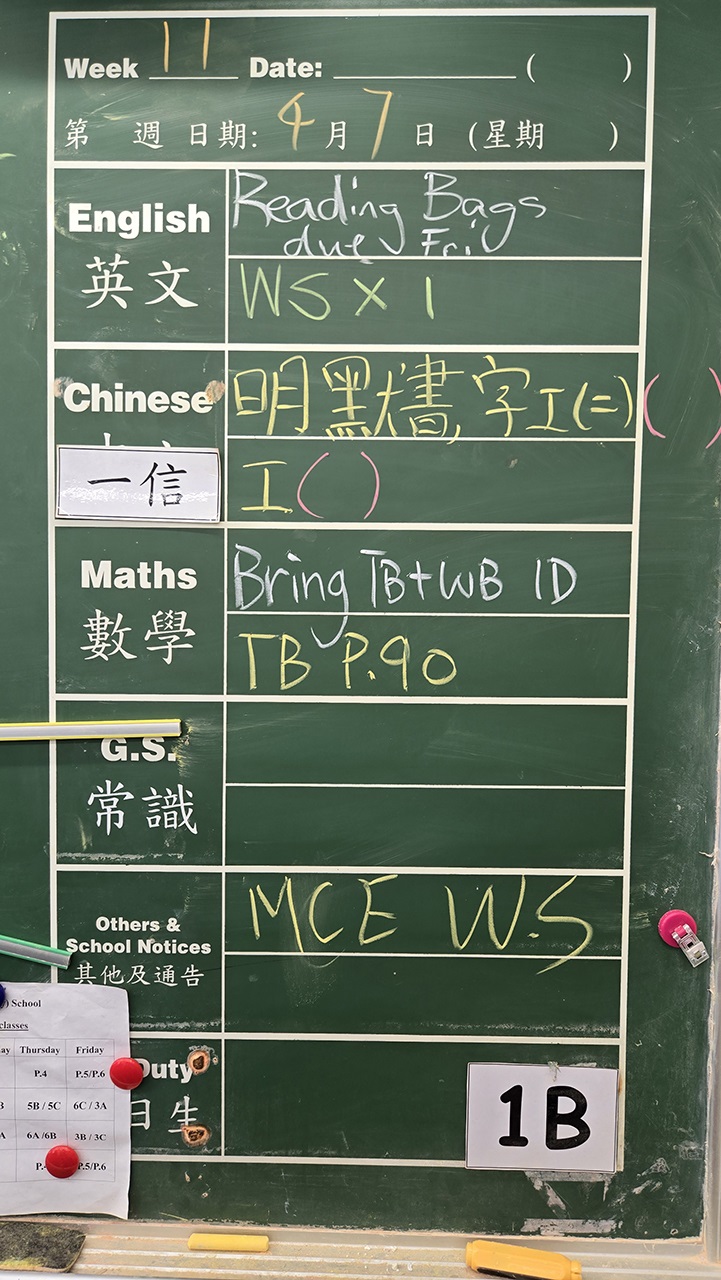 Week 11 Date: ( )
第 週 日期: 4月7日 (星期 )
English
英文
Reading Bags
due Fri
WS X 1
Chinese
明默書, 字工(二) ( )
一信
工( )
Maths
數學
Bring TB+WB 1D
TB P.90
G.S.
常識
Others &
School Notices
其他及通告
MCE W.S
Duty
日生
1B
School
classes
ay Thursday Friday
P.4 P.5/P.6
B 5B / 5C 6C / 3A
A 6A /6B 3B / 3C
P. P.5/P.6